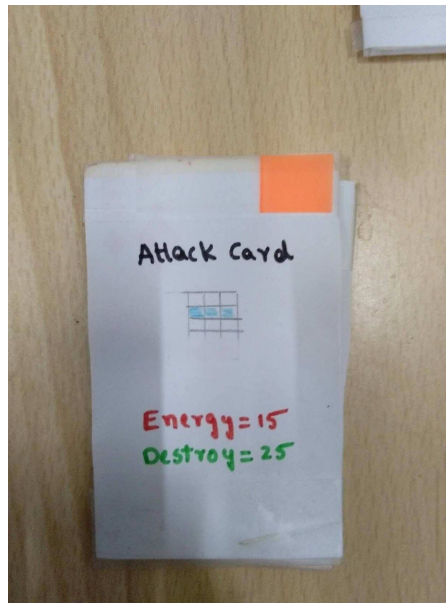 Attack Card
Energy=15
Destroy=25